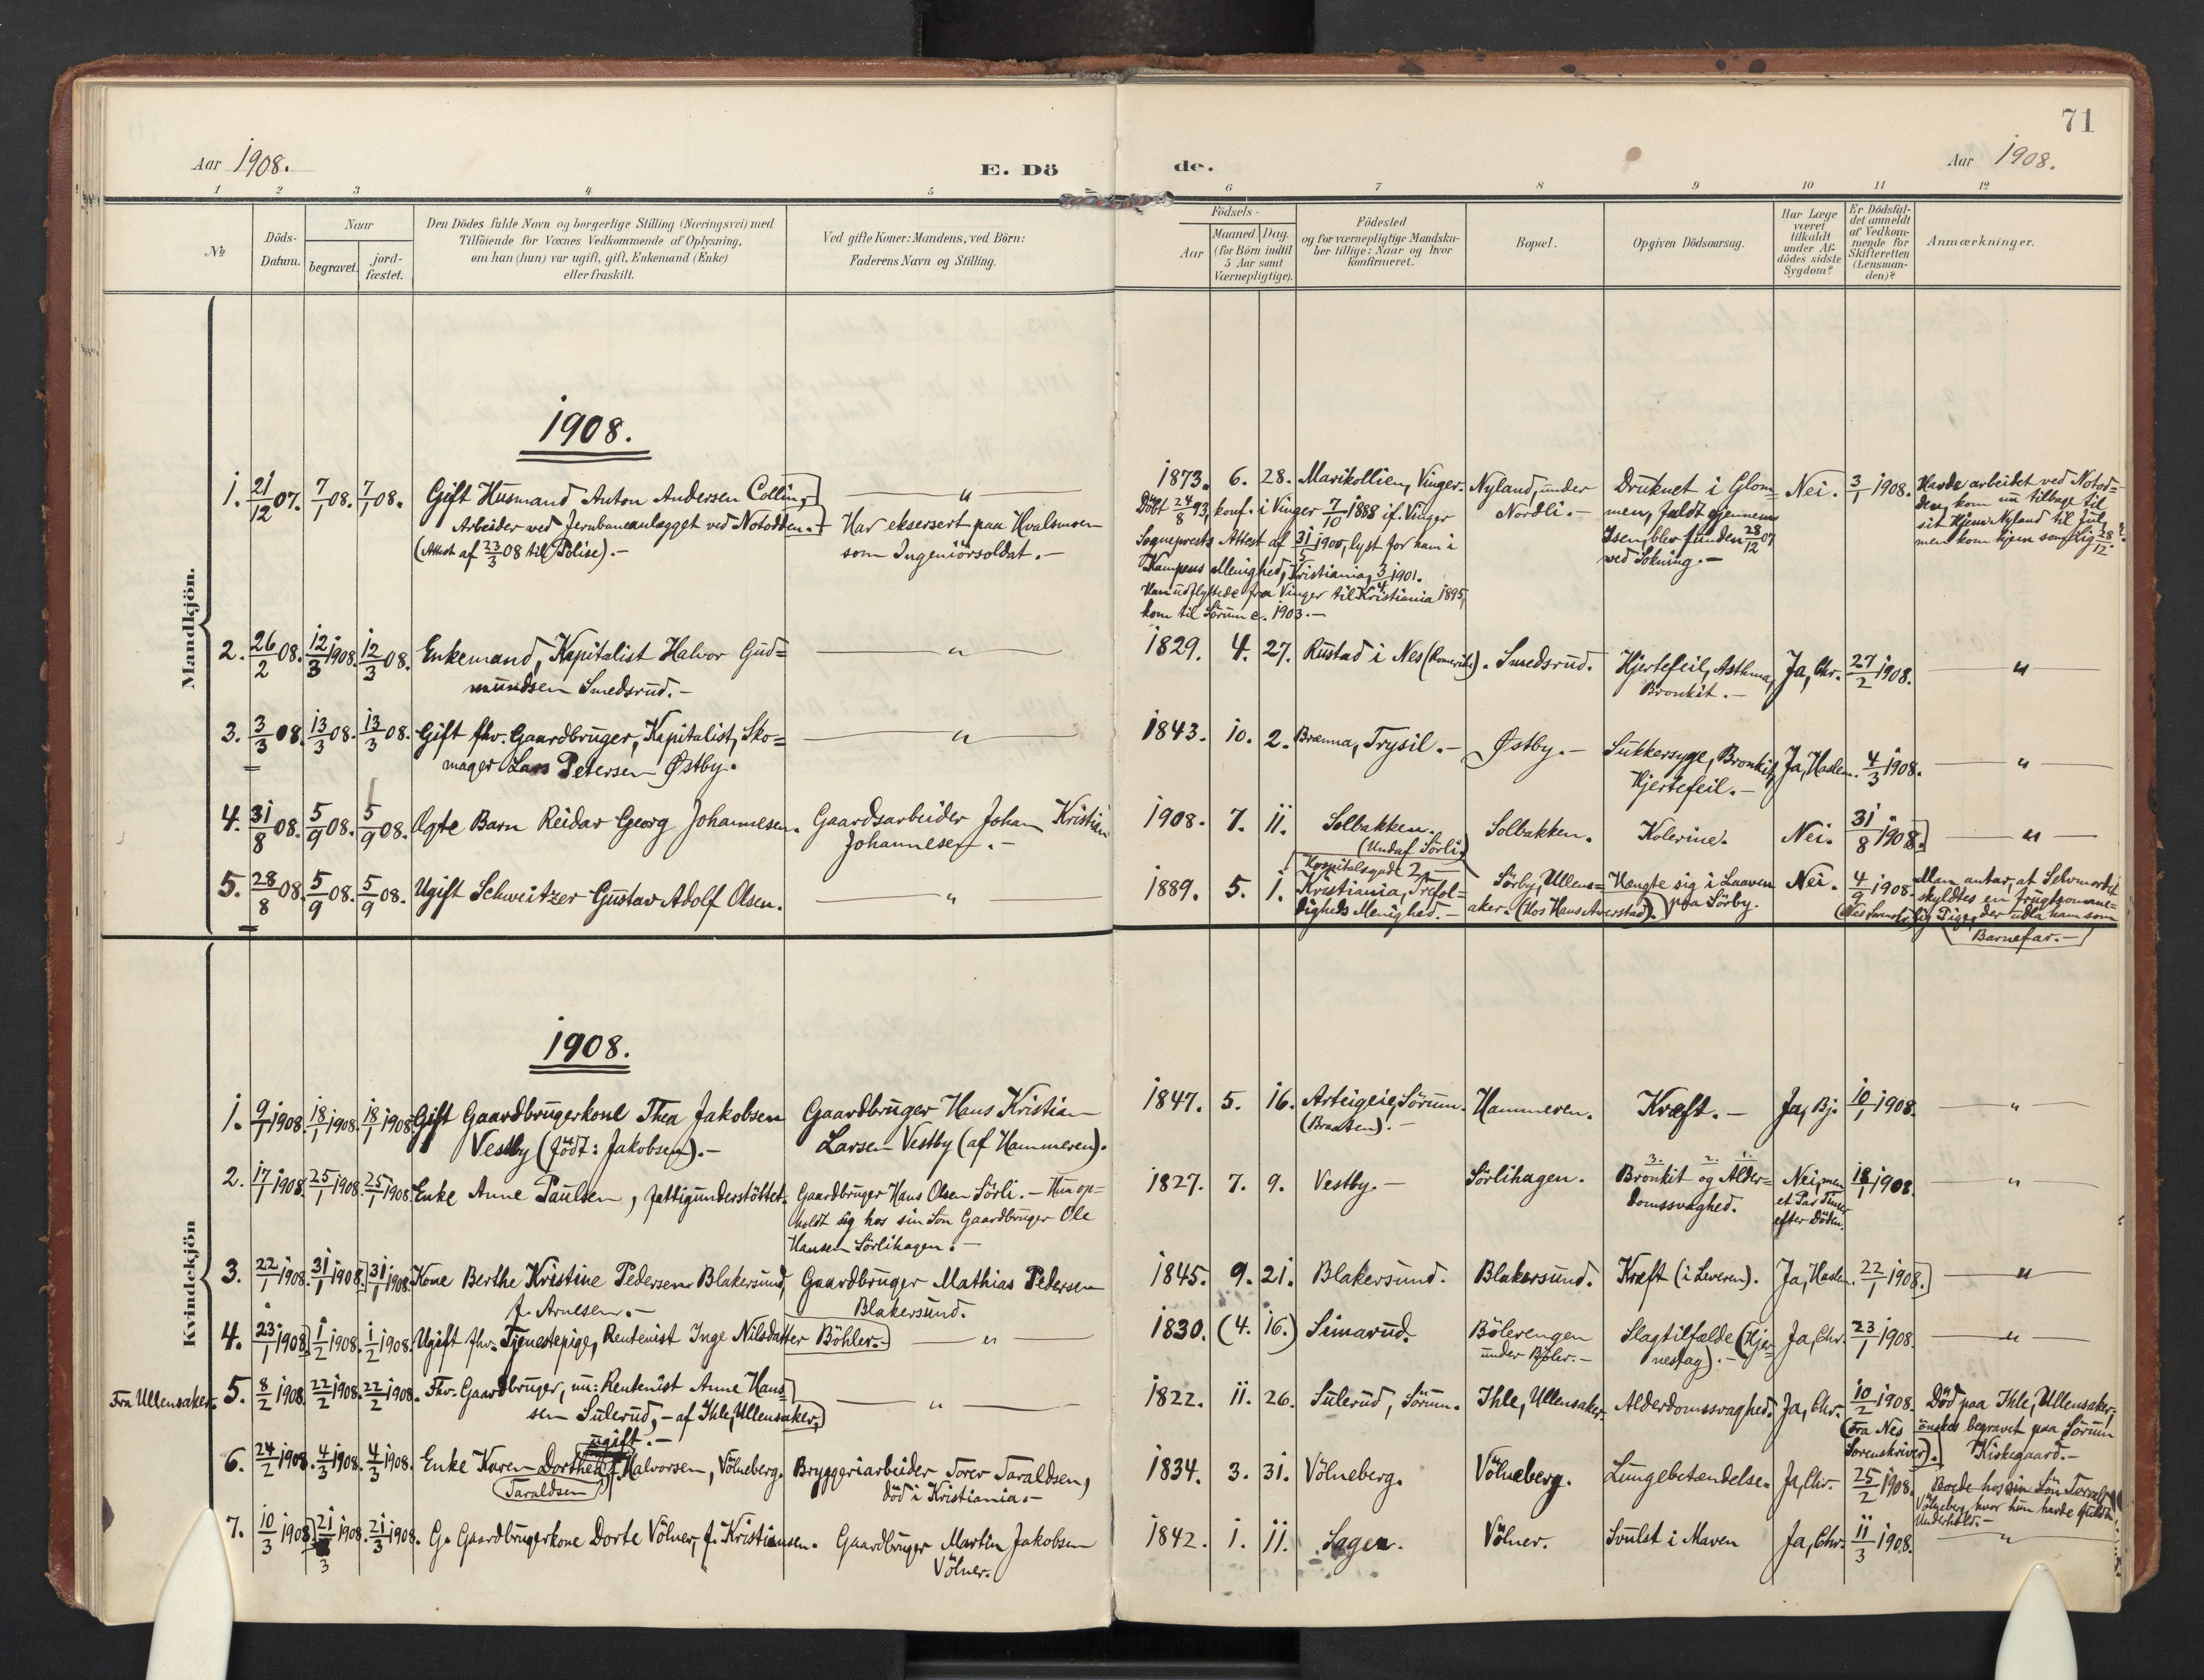 71
Aar 1908.
E. Dö de.
Aar 1908.
1 2 3 4 5 6 7 8 9 10 11 12
No
Döds-
Datum.
Naar
begravet.
jord-
fæstet.
Den Dödes fulde Navn og borgerlige Stilling (Næringsvei) med
Tilföiende for Voxnes Vedkommende af Oplysning,
om han (hun) var ugift, gift, Enkemand (Enke)
eller fraskilt.
Ved gifte Koner: Mandens, ved Börn:
Faderens Navn og Stilling.
Födsels-
Aar
Maaned. Dag.
(for Börn indtil
5 Aar samt
Værnepligtige).
Födested
og for værnepligtige Mandska-
ber tillige: Naar og hvor
konfirmeret.
Bopæl.
Opgiven Dödsaarsag.
Har Læge
været
tilkaldt
under Af-
dödes sidste
Sygdom?
Er Dödsfal-
det anmeldt
af Vedkom-
mende for
Skifteretten
(Lensman-
den)?
Anmærkninger.
Mandkjön.
1908.
1. 21/12 07. 7/1 08. 7/1 08.
Gift Husmand Anton Andersen Colling,
Arbeider ved Jernbaneanlægget ved Notodden.
(Attest af 23/3 08 til Polise).-
— " —
Har eksersert paa Hvalsmoen
som Ingeniörsoldat.-
1873. 6. 28. Marikollien, Vinger.
Döbt 24/8 73, konf. i Vinger 7/10 1888 if. Vinger
Sogneprests Attest af 31/5 1900, lyst for ham i
Kampens Menighed, Kristiania, 3/4 1901.
Han udflyttede fra Vinger til Kristiania 1895,
kom til Sörum c. 1903.-
Nyland, under
Nordli.-
Druknet i Glom=
men, faldt gjennem
Isen, blev funden 28/12 07
ved Sokning.-
Nei.
3/1 1908.
Havde arbeidet ved Notod=
den, kom nu tilbage til
sit Hjem Nyland til Jul,
men kom hjem som Lig 28/12.
2. 26/2 08. 12/3 1908. 12/3 08.
Enkemand, Kapitalist Halvor Gud=
mundsen Smedsrud.-
— " —
1829. 4. 27. Rustad i Nes (Romerike).
Smedsrud.
Hjertefeil, Asthma,
Bronkit.-
Ja, Chr.
27/2 1908.
— " —
3. 3/3 08. 13/3 08. 13/3 08.
Gift fhv. Gaardbruger, Kapitalist, Sko=
mager Lars Petersen Østby.
— " —
1843. 10. 2. Brænna, Trysil.-
Østby.-
Sukkersyge, Bronkit,
Hjertefeil.-
Ja, Haslem.
4/3 1908.
— " —
4. 31/8 08. 5/9 08. 5/9 08.
Ægte Barn Reidar Georg Johannesen.
Gaardsarbeider Johan Kristian
Johannesen.-
1908. 7. 11. Solbakken.
(Undaf Sörli)
Solbakken.
Kolerine.
Nei.
31/8 1908.
— " —
5. 28/8 08. 5/9 08. 5/9 08.
Ugift Schweitzer Gustav Adolf Olsen.
— " —
1889. 5. 1. Hospitalsgade 2
Kristiania, Trefol=
digheds Menighed.-
Sörby, Ullens=
aker. (Hos Hans Averstad).
Hængte sig i Laaven
paa Sörby.
Nei.
4/9 1908.
Man antar, at Selvmordet
skyldtes en frugtsomme=
lig Pige, der udla ham som
Barnefar.-
Kvindekjön
1908.
1. 9/1 1908. 18/1 1908. 18/1 1908.
Gift Gaardbrugerkone Thea Jakobsen
Vestby (född: Jakobsen).-
Gaardbruger Hans Kristian
Larsen Vestby (af Hammeren).
1847. 5. 16. Arteigeie, Sörum.
(Braaten).-
Hammeren.
Kræft.-
Ja, Bj.
10/1 1908.
— " —
2. 17/1 1908. 25/1 1908. 25/1 1908.
Enke Anne Paulsen, fattigunderstöttet.
Gaardbruger Hans Olsen Sörli.- Hun op=
holdt sig hos sin Sön Gaardbruger Ole
Hansen Sörlihagen.-
1827. 7. 9. Vestby.-
Sörlihagen.
3. 2. 1.
Bronkit og Alder=
domssvaghed.
Nei, men
et Par Timer
efter Döden.
18/1 1908.
— " —
3. 22/1 1908. 31/1 1908. 31/1 1908.
Kone Berthe Kristine Pedersen Blakersund,
f. Arnesen.-
Gaardbruger Mathias Pedersen
Blakersund.
1845. 9. 21. Blakersund.
Blakersund.
Kræft (i Leveren).
Ja, Haslem.
22/1 1908.
— " —
4. 23/1 1908. 1/2 1908. 1/2 1908.
Ugift fhv. Tjenestepige, Rentenist Inge Nilsdatter Böhler.
— " —
1830. (4. 16.) Simarud.
Bölerengen
under Böler.-
Slagtilfælde (Hjer=
neslag).-
Ja, Chr.
23/1 1908.
— " —
Fra Ullensaker.
5. 8/2 1908. 22/2 1908. 22/2 1908.
Fhv. Gaardbruger, nu: Rentenist Anne Han=
sen Sulerud,- af Ihle, Ullensaker,
ugift.-
— " —
1822. 11. 26. Sulerud, Sörum.
Ihle, Ullensaker.
Alderdomssvaghed.
Ja, Chr.
10/2 1908.
(Fra Nes
Sorenskriver).
Död paa Ihle, Ullensaker,
önskes begravet paa Sörum
Kirkegaard.-
6. 24/2 1908. 4/3 1908. 4/3 1908.
Enke Karen Dorthea Halvorsen, Völneberg.
Taraldsen
Bryggeriarbeider Torer Taraldsen,
död i Kristiania.-
1834. 3. 31. Völneberg.
Völneberg.
Lungebetændelse.
Ja, Chr.
25/2 1908.
Boede hos sin Sön
Völneberg, hvor hun havde fuldt
Underhold.-
7. 10/3 1908. 21/3 1908. 21/3 1908.
G. Gaardbrugerkone Dorte Völner, f. Kristiansen.
Gaardbruger Martin Jakobsen
Völner.
1842. 1. 11. Sagen.
Völner.
Svulst i Maven
Ja, Chr.
11/3 1908.
— " —